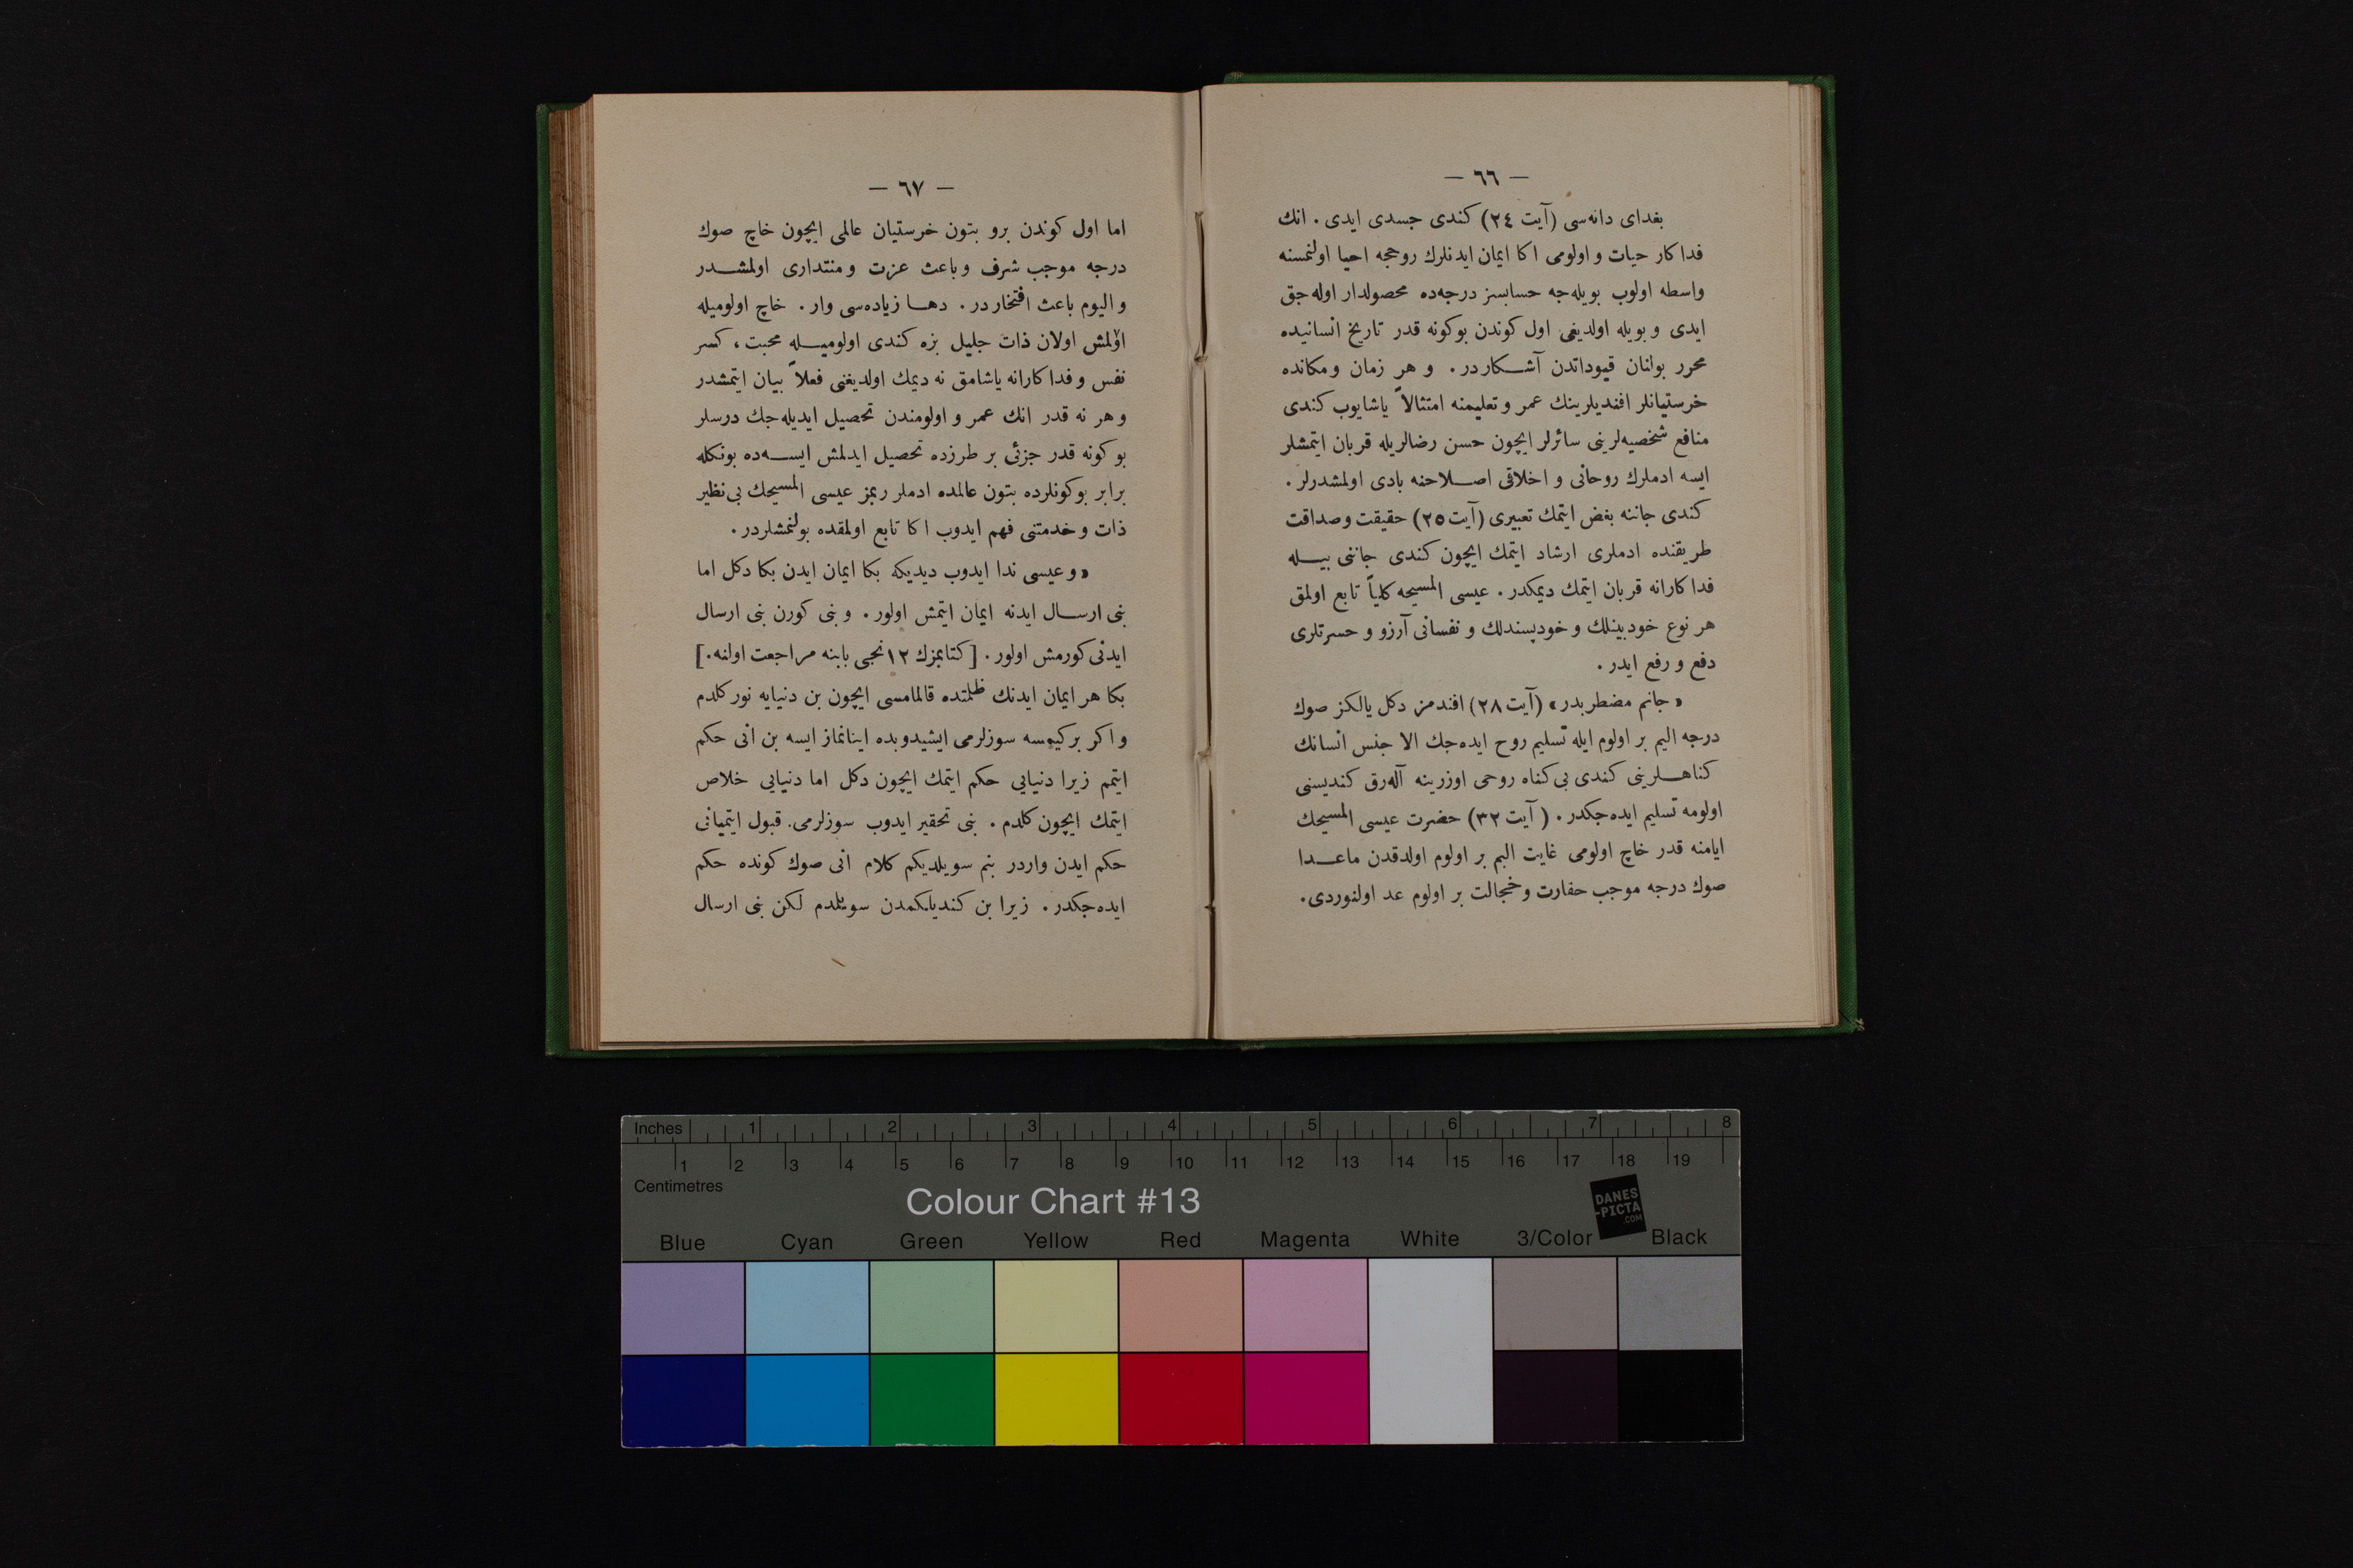 — ٦٦ —
بغدای دانه‌سی (آیت ٢٤) كندی جسدی ایدی. انك
فدا كار حیات و اولومی اكا ایمان ایدنلرك روحجه احیا اولنمسنه
واسطه اولوب بویله‌جه حسابسز درجه‌ده محصولدار اوله جق
ایدی و بویله اولدیغی اول كوندن بو كونه قدر تاریخ انسانیده
محرر بولنان قیوداتدن آشكاردر. و هر زمان و مكانده
خرستیانلر افندیلرینك عمر و تعلیمنه امتثالاً یاشایوب كندی
منافع شخصیه‌لرینی سائرلر ایچون حسن رضالریله قربان ایتمشلر
ایسه ادملرك روحانی و اخلاقی اصلاحنه بادی اولمشدرلر.
كندی جاننه بغض ایتمك تعبیری (آیت ٢٥) حقیقت و صداقت
طریقنده ادملری ارشاد ایتمك ایچون كندی جاننی بیله
فدا كارانه قربان ایتمك دیمكدر. عیسی المسیحه كلیاً تابع اولمق
هر نوع خودبینلك و خودپسندلك و نفسانی آرزو و حسرتلری
دفع و رفع ایدر.
« جانم مضطربدر » (آیت ٢٨) افندمز دكل یالكز صوك
درجه الیم بر اولوم ایله تسلیم روح ایده‌جك الا جنس انسانك
كناهلرینی كندی بی كناه روحی اوزرینه آله‌رق كندیسنی
اولومه تسلیم ایده‌جكدر. (آیت ٣٢) حضرت عیسی المسیحك
ایامنه قدر خاچ اولومی غایت الیم بر اولوم اولدقدن ماعدا
صوك درجه موجب حقارت و خجالت بر اولوم عد اولنوردی.
— ٦٧ —
اما اول كوندن برو بتون خرستیان عالمی ایچون خاچ صوك
درجه موجب شرف و باعث عزت و منتداری اولمشدر
و الیوم باعث افتخاردر. دها زیاده‌سی وار. خاچ اولومیله
اؤلمش اولان ذات جلیل بزه كندی اولومیله محبت، كسر
نفس و فدا كارانه یاشامق نه دیمك اولدیغنی فعلاً بیان ایتمشدر
و هر نه قدر انك عمر و اولومندن تحصیل ایدیله‌جك درسلر
بو كونه قدر جزئی بر طرزده تحصیل ایدلمش ایسه‌ده بونكله
برابر بو كونلرده بتون عالمده ادملر ربمز عیسی المسیحك بی نظیر
ذات و خدمتنی فهم ایدوب اكا تابع اولمقده بولنمشلردر.
« و عیسی ندا ایدوب دیدیكه بكا ایمان ایدن بكا دكل اما
بنی ارسال ایدنه ایمان ایتمش اولور. و بنی كورن بنی ارسال
ایدنی كورمش اولور. [كتابمزك ١٢نجی بابنه مراجعت اولنه.]
بكا هر ایمان ایدنك ظلمتده قالمامسی ایچون بن دنیایه نور كلدم
و اكر بر كیمسه سوزلرمی ایشیدوبده اینانماز ایسه بن انی حكم
ایتمم زیرا دنیایی حكم ایتمك ایچون دكل اما دنیایی خلاص
ایتمك ایچون كلدم. بنی تحقیر ایدوب سوزلرمی قبول ایتمیانی
حكم ایدن واردر بنم سویلدیكم كلام انی صوك كونده حكم
ایده‌جكدر. زیرا بن كندیلكمدن سویلمدم لكن بنی ارسال
Inches 1 2 3 4 5 6 7 8
1 2 3 4 5 6 7 8 9 10 11 12 13 14 15 16 17 18 19
Centimetres
Colour Chart #13
DANES
-PICTA
.COM
Blue Cyan Green Yellow Red Magenta White 3/Color Black